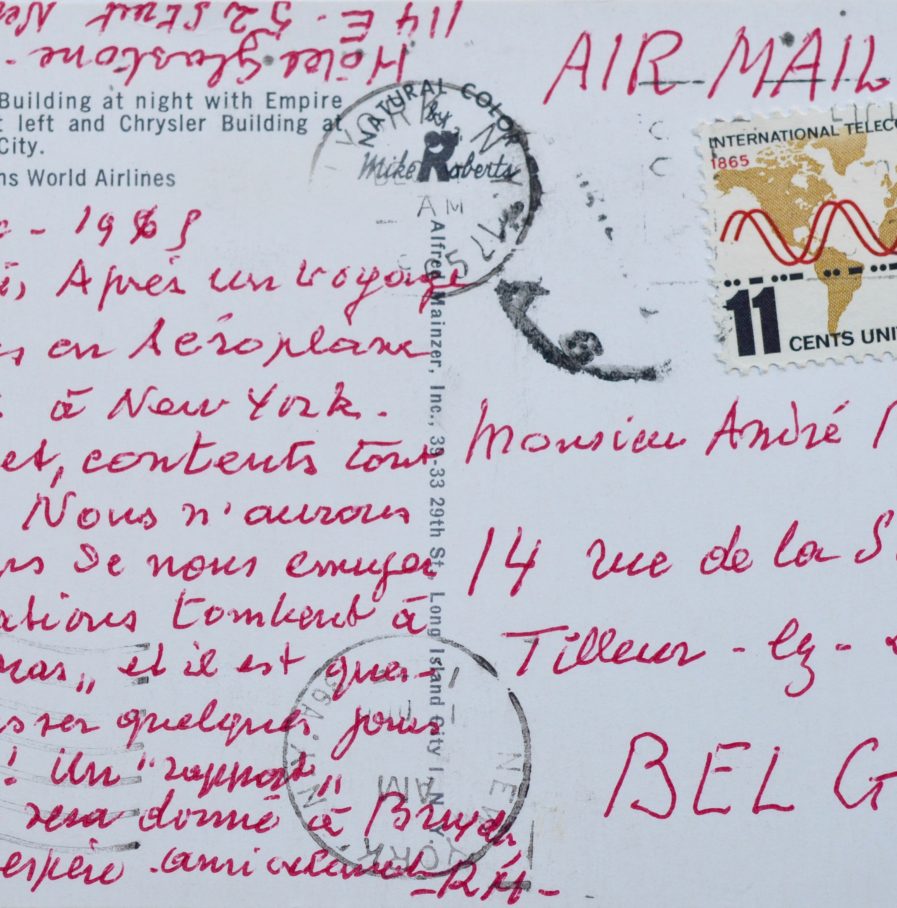 114 E. 52 Street New
Hotel Glastone -
AIR MAIL
Building at night with Empire
left and Chrysler Building at
City.
ns World Airlines
NATURAL COLOR
by
Mike Roberts
YORK, N.Y.
AM
INTERNATIONAL TELECO
1865
11 CENTS UNI
Alfred Mainzer, Inc., 39-33 29th St., Long Island City 1, N. Y.
Après un voyage
en Aéroplane
à New York.
et, contents tout
Nous n'aurons
de nous ennuyer
ations tombent à
ras,, et il est ques-
sser quelques jours
! Un "rapport"
sera donné à
espère
- RH -
Monsieur André
14 rue de la S
Tilleur - lez -
BELG
NEW YORK, N.Y.
AM